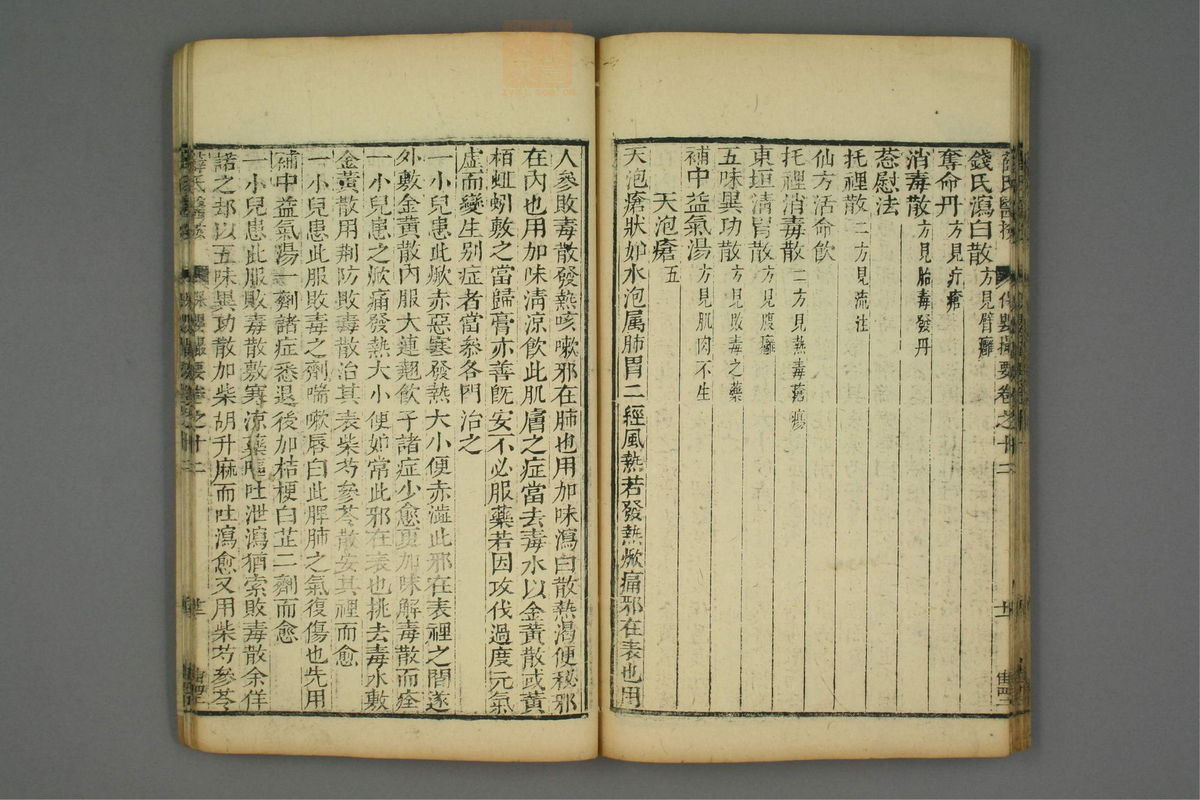 錢氏瀉白散方見臂癰
奪命丹方見疔瘡
消毒散方見胎毒發丹
葱慰法
托裡散二方見流注
仙方活命飲
托裡消毒散二方見熱毒瘡瘍
東垣清胃散方見腹癰
五味異功散方見敗毒之藥
補中益氣湯方見肌肉不生
天泡瘡五
天泡瘡狀如水泡属肺胃二經風熱若發熱焮痛邪在表也用
人參敗毒散發熱咳嗽邪在肺也用加味瀉白散熱渴便秘邪
在内也用加味清涼飲此肌膚之症當去毒水以金黄散或黄
栢蚯蚓敷之當歸膏亦善旣安不必服藥若因攻伐過度元氣
虛而變生别症者當叅各門治之
一小兒患此焮赤惡寒發熱大小便赤澁此邪在表裡之間遂
外敷金黄散内服大連翹飲子諸症少愈更加味解毒散而痊
一小兒患之焮痛發熱大小便如常此邪在表也挑去毒水敷
金黄散用荆防敗毒散治其表柴芍參苓散安其裡而愈
一小兒患此服敗毒之劑喘嗽唇白此脾肺之氣復傷也先用
補中益氣湯一劑諸症悉退後加桔梗白芷二劑而愈
一小兒患此服敗毒散敷寒涼藥嘔吐泄瀉猶索敗毒散余佯
諾之却以五味異功散加柴胡升麻而吐瀉愈又用柴芍參苓
薛氏醫按 保嬰撮要卷之十二